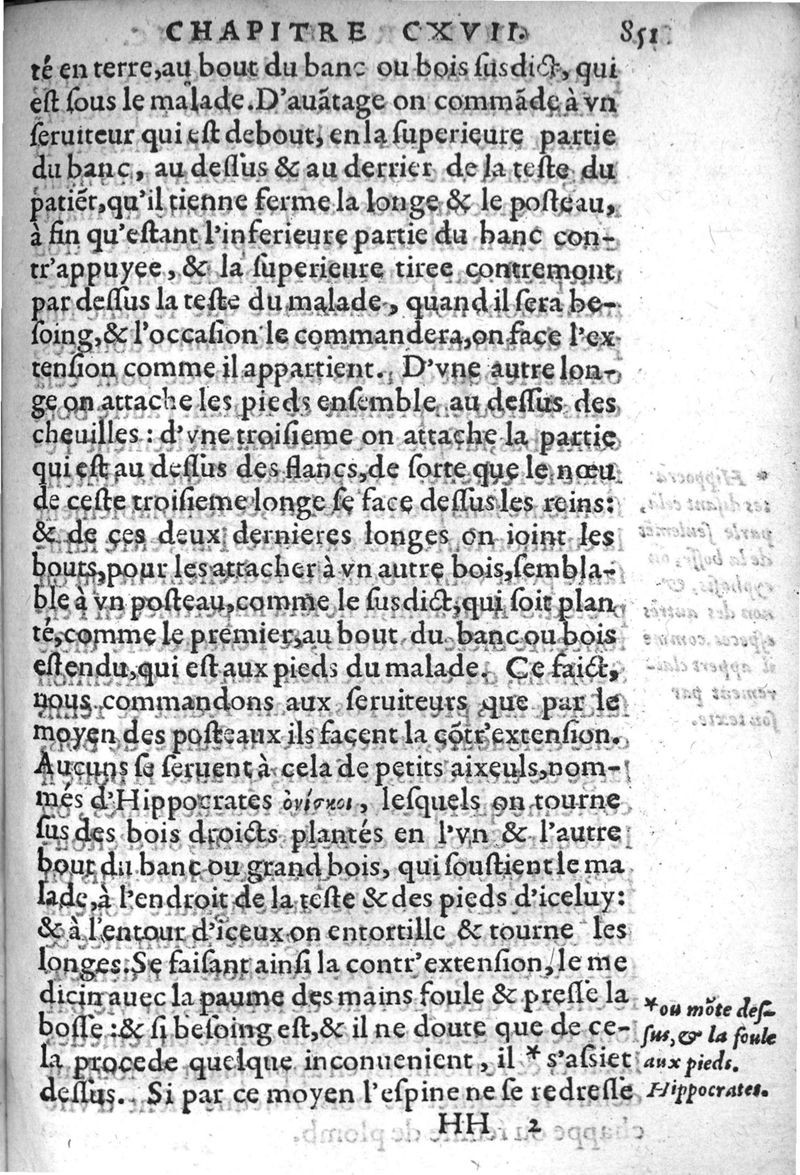 CHAPITRE CXVII. 851
té en terre,au bout du banc ou bois ſusdict, qui
eſt ſous le malade. D'auãtage on commãde à vn
ſeruiteur qui eſt debout, en la ſuperieure partie
du banc, au deſſus & au derrier de la teſte du
patiẽt,qu'il tienne ferme la longe & le poſteau,
à fin qu'eſtant l'inferieure partie du banc con-
tr'appuyee, & la ſuperieure tiree contremont
par deſſus la teſte du malade, quand il ſera be-
ſoing,& l'occaſion le commandera,on face l'ex
tenſion comme il appartient. D'vne autre lon-
ge on attache les pieds enſemble au deſſus des
cheuilles : d'vne troiſieme on attache la partie
qui eſt au deſſus des flancs,de ſorte que le nœu
de ceſte troiſieme longe ſe face deſſus les reins:
& de ces deux dernieres longes on ioint les
bouts,pour les attacher à vn autre bois,ſembla-
ble à vn poſteau,comme le ſusdict,qui ſoit plan
té,comme le premier,au bout du banc ou bois
eſtendu,qui eſt aux pieds du malade. Ce faict,
nous commandons aux ſeruiteurs que par le
moyen des poſteaux ils façent la cõtr'extenſion.
Aucuns ſe ſeruent à cela de petits aixeuls,nom-
més d'Hippocrates ὀνίσκοι, leſquels on tourne
ſus des bois droicts plantés en l'vn & l'autre
bout du banc ou grand bois, qui ſouſtient le ma
lade,à l'endroit de la teſte & des pieds d'iceluy:
& à l'entour d'iceux on entortille & tourne les
longes:Se faiſant ainſi la contr'extenſion, le me
dicin auec la paume des mains foule & preſſe la
boſſe : & ſi beſoing eſt,& il ne doute que de ce-
la procede quelque inconuenient, il * s'aſſiet
deſſus. Si par ce moyen l'eſpine ne ſe redreſſe
*ou mõte deſ-
ſus, & la foule
aux pieds.
Hippocrates.
HH 2